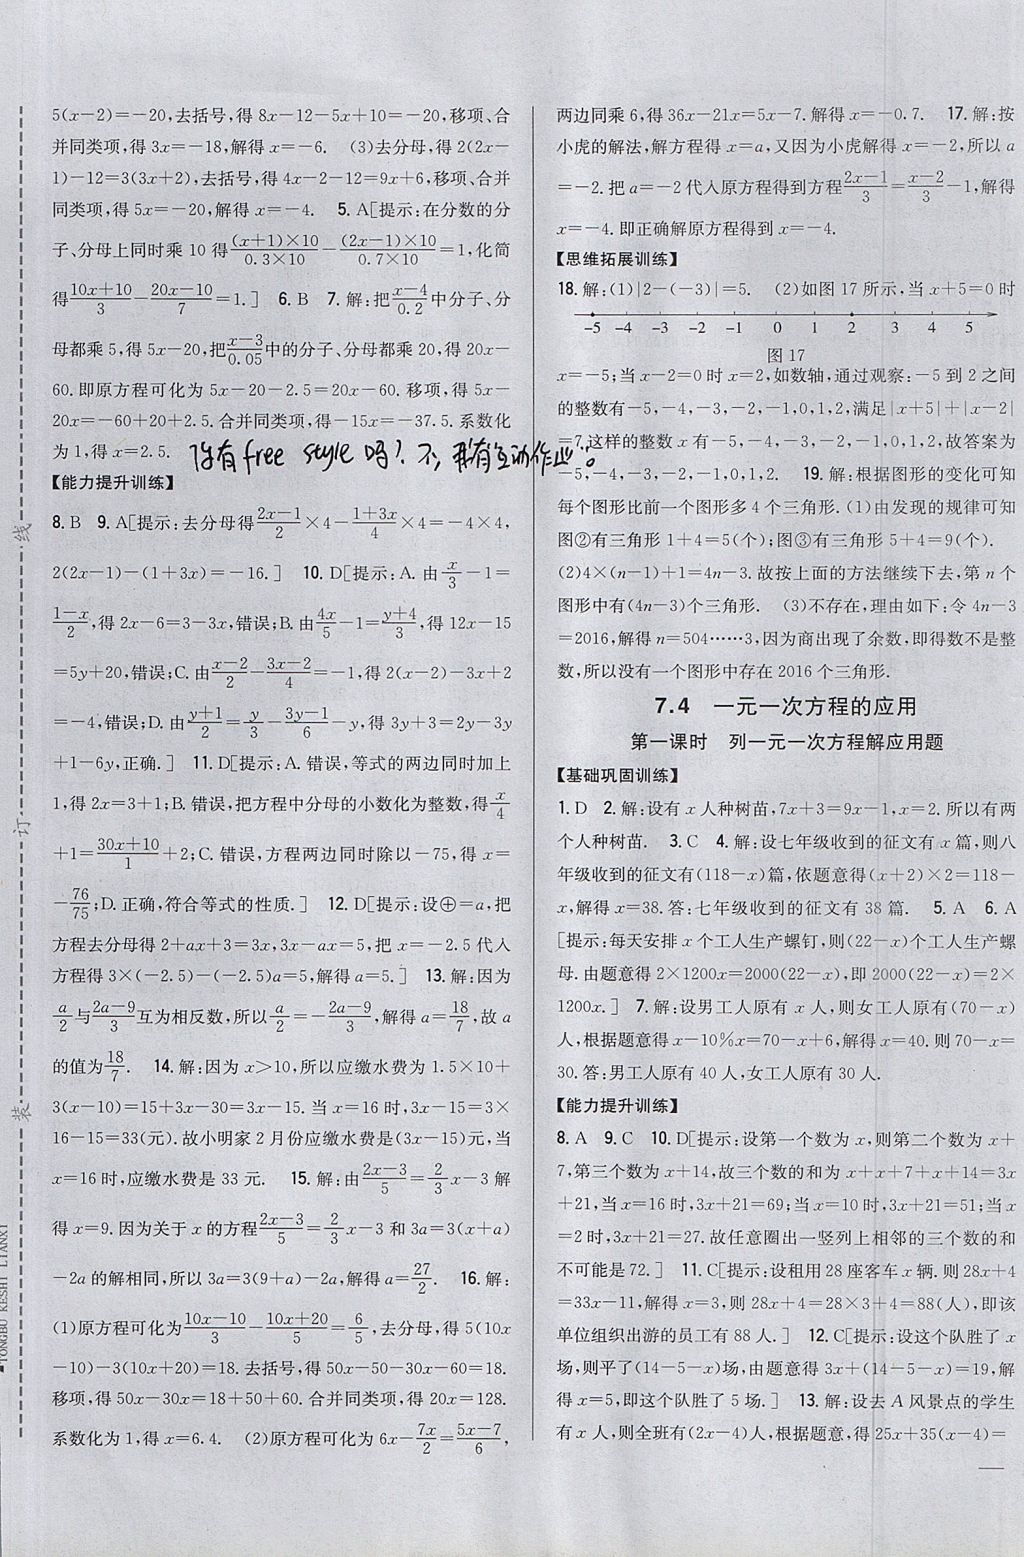 5(x－2)＝－20,去括号,得 8x－12－5x＋10＝－20,移项、合
并同类项,得 3x＝－18,解得 x＝－6. (3)去分母,得 2(2x－
1)－12＝3(3x＋2),去括号,得 4x－2－12＝9x＋6,移项、合并
同类项,得 5x＝－20,解得 x＝－4. 5. A[提示:在分数的分
子、分母上同时乘 10 得(x＋1)×10/0.3×10－(2x－1)×10/0.7×10＝1,化简
得10x＋10/3－20x－10/7＝1.] 6. B 7. 解:把x－4/0.2中分子、分
母都乘 5,得 5x－20,把x－3/0.05中的分子、分母都乘 20,得 20x－
60.即原方程可化为 5x－20－2.5＝20x－60.移项,得 5x－
20x＝－60＋20＋2.5.合并同类项,得－15x＝－37.5.系数化
为 1,得 x＝2.5.
你有 free style 吗?不,我有互动作业。
【能力提升训练】
8. B 9. A[提示:去分母得2x－1/2×4－1＋3x/4×4＝－4×4,
2(2x－1)－(1＋3x)＝－16.] 10. D[提示:A. 由x/3－1＝
1－x/2,得 2x－6＝3－3x,错误;B. 由4x/5－1＝y＋4/3,得 12x－15
＝5y＋20,错误;C. 由x－2/2－3x－2/4＝－1,得 2(x－2)－3x＋2
＝－4,错误;D. 由y＋1/2＝y/3－3y－1/6－y,得 3y＋3＝2y－3y
＋1－6y,正确.] 11. D[提示:A. 错误,等式的两边同时加上
1,得 2x＝3＋1;B. 错误,把方程中分母的小数化为整数,得x/4
＋1＝30x＋10/1＋2;C. 错误,方程两边同时除以－75,得 x＝
－76/75;D. 正确,符合等式的性质.] 12. D[提示:设⊕＝a,把
方程去分母得 2＋ax＋3＝3x,3x－ax＝5,把 x＝－2.5 代入
方程得 3×(－2.5)－(－2.5)a＝5,解得 a＝5.] 13. 解:因为
a/2与2a－9/3互为相反数,所以a/2＝－2a－9/3,解得 a＝18/7,故 a
的值为18/7. 14. 解:因为 x＞10,所以应缴水费为 1.5×10＋
3(x－10)＝15＋3x－30＝3x－15. 当 x＝16 时,3x－15＝3×
16－15＝33(元).故小明家 2 月份应缴水费是(3x－15)元,当
x＝16 时,应缴水费是 33 元. 15. 解:由2x－3/5＝2/3x－3 解
得 x＝9. 因为关于 x 的方程2x－3/5＝2/3x－3 和 3a＝3(x＋a)
－2a 的解相同,所以 3a＝3(9＋a)－2a,解得 a＝27/2. 16. 解:
(1)原方程可化为10x－10/3－10x＋20/5＝6/5,去分母,得 5(10x
－10)－3(10x＋20)＝18.去括号,得 50x－50－30x－60＝18.
移项,得 50x－30x＝18＋50＋60. 合并同类项,得 20x＝128.
系数化为 1,得 x＝6.4. (2)原方程可化为 6x－7x/2＝5x－7/6,
两边同乘 6,得 36x－21x＝5x－7.解得 x＝－0.7. 17. 解:按
小虎的解法,解方程得 x＝a,又因为小虎解得 x＝－2,所以 a
＝－2.把 a＝－2 代入原方程得到方程2x－1/3＝x－2/3－1,解得
x＝－4.即正确解原方程得到 x＝－4.
【思维拓展训练】
18. 解:(1)|2－(－3)|＝5. (2)如图 17 所示,当 x＋5＝0 时
－5 －4 －3 －2 －1 0 1 2 3 4 5
图 17
x＝－5;当 x－2＝0 时 x＝2,如数轴,通过观察:－5 到 2 之间
的整数有－5,－4,－3,－2,－1,0,1,2,满足|x＋5|＋|x－2|
＝7,这样的整数 x 有－5,－4,－3,－2,－1,0,1,2,故答案为
－5,－4,－3,－2,－1,0,1,2. 19. 解:根据图形的变化可知
每个图形比前一个图形多 4 个三角形.(1)由发现的规律可知
图②有三角形 1＋4＝5(个);图③有三角形 5＋4＝9(个).
(2)4×(n－1)＋1＝4n－3.故按上面的方法继续下去,第 n 个
图形中有(4n－3)个三角形. (3)不存在,理由如下:令 4n－3
＝2016,解得 n＝504……3,因为商出现了余数,即得数不是整
数,所以没有一个图形中存在 2016 个三角形.
7.4 一元一次方程的应用
第一课时 列一元一次方程解应用题
【基础巩固训练】
1. D 2. 解:设有 x 人种树苗,7x＋3＝9x－1,x＝2. 所以有两
个人种树苗. 3. C 4. 解:设七年级收到的征文有 x 篇,则八
年级收到的征文有(118－x)篇,依题意得(x＋2)×2＝118－
x,解得 x＝38.答:七年级收到的征文有 38 篇. 5. A 6. A
[提示:每天安排 x 个工人生产螺钉,则(22－x)个工人生产螺
母.由题意得 2×1200x＝2000(22－x),即 2000(22－x)＝2×
1200x.] 7. 解:设男工人原有 x 人,则女工人原有(70－x)
人,根据题意得 x－10%x＝70－x＋6,解得 x＝40.则 70－x＝
30.答:男工人原有 40 人,女工人原有 30 人.
【能力提升训练】
8. A 9. C 10. D[提示:设第一个数为 x,则第二个数为 x＋
7,第三个数为 x＋14,故三个数的和为 x＋x＋7＋x＋14＝3x
＋21,当 x＝16 时,3x＋21＝69;当 x＝10 时,3x＋21＝51;当 x
＝2 时,3x＋21＝27.故任意圈出一竖列上相邻的三个数的和
不可能是 72.] 11. C[提示:设租用 28 座客车 x 辆.则 28x＋4
＝33x－11,解得 x＝3,则 28x＋4＝28×3＋4＝88(人),即该
单位组织出游的员工有 88 人.] 12. C[提示:设这个队胜了 x
场,则平了(14－5－x)场,由题意得 3x＋(14－5－x)＝19,解
得 x＝5,即这个队胜了 5 场.] 13. 解:设去 A 风景点的学生
有 x 人,则全班有(2x－4)人,根据题意,得 25x＋35(x－4)＝
线
订
装
TONGBU KESHI LIANXI